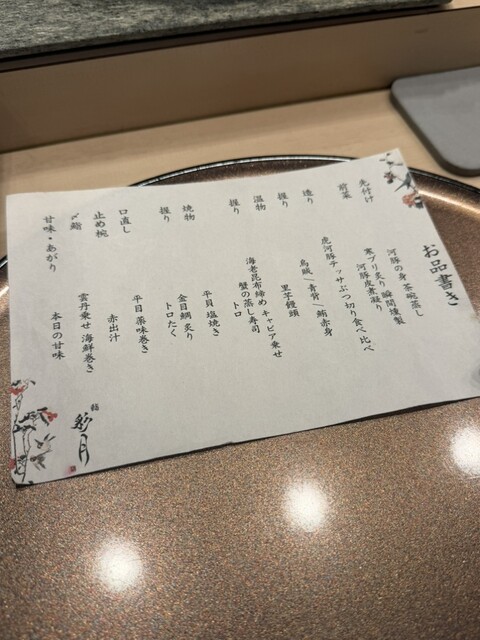 お品書き
先付け
河豚の身 茶碗蒸し
前菜
寒ブリ炙り 瞬間燻製
河豚皮煮凝り
造り
虎河豚テッサぶつ切り食べ比べ
握り
烏賊/青背/鮪赤身
温物
里芋饅頭
握り
海老昆布締め キャビア乗せ
蟹の蒸し寿司
トロ
焼物
平貝 塩焼き
握り
金目鯛 炙り
トロたく
口直し
平目 薬味巻き
止め椀
赤出汁
〆鮨
雲丹乗せ 海鮮巻き
甘味・あがり
本日の甘味
鮨